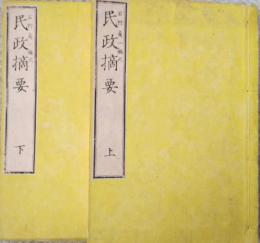 民政摘要
上
民政摘要
下